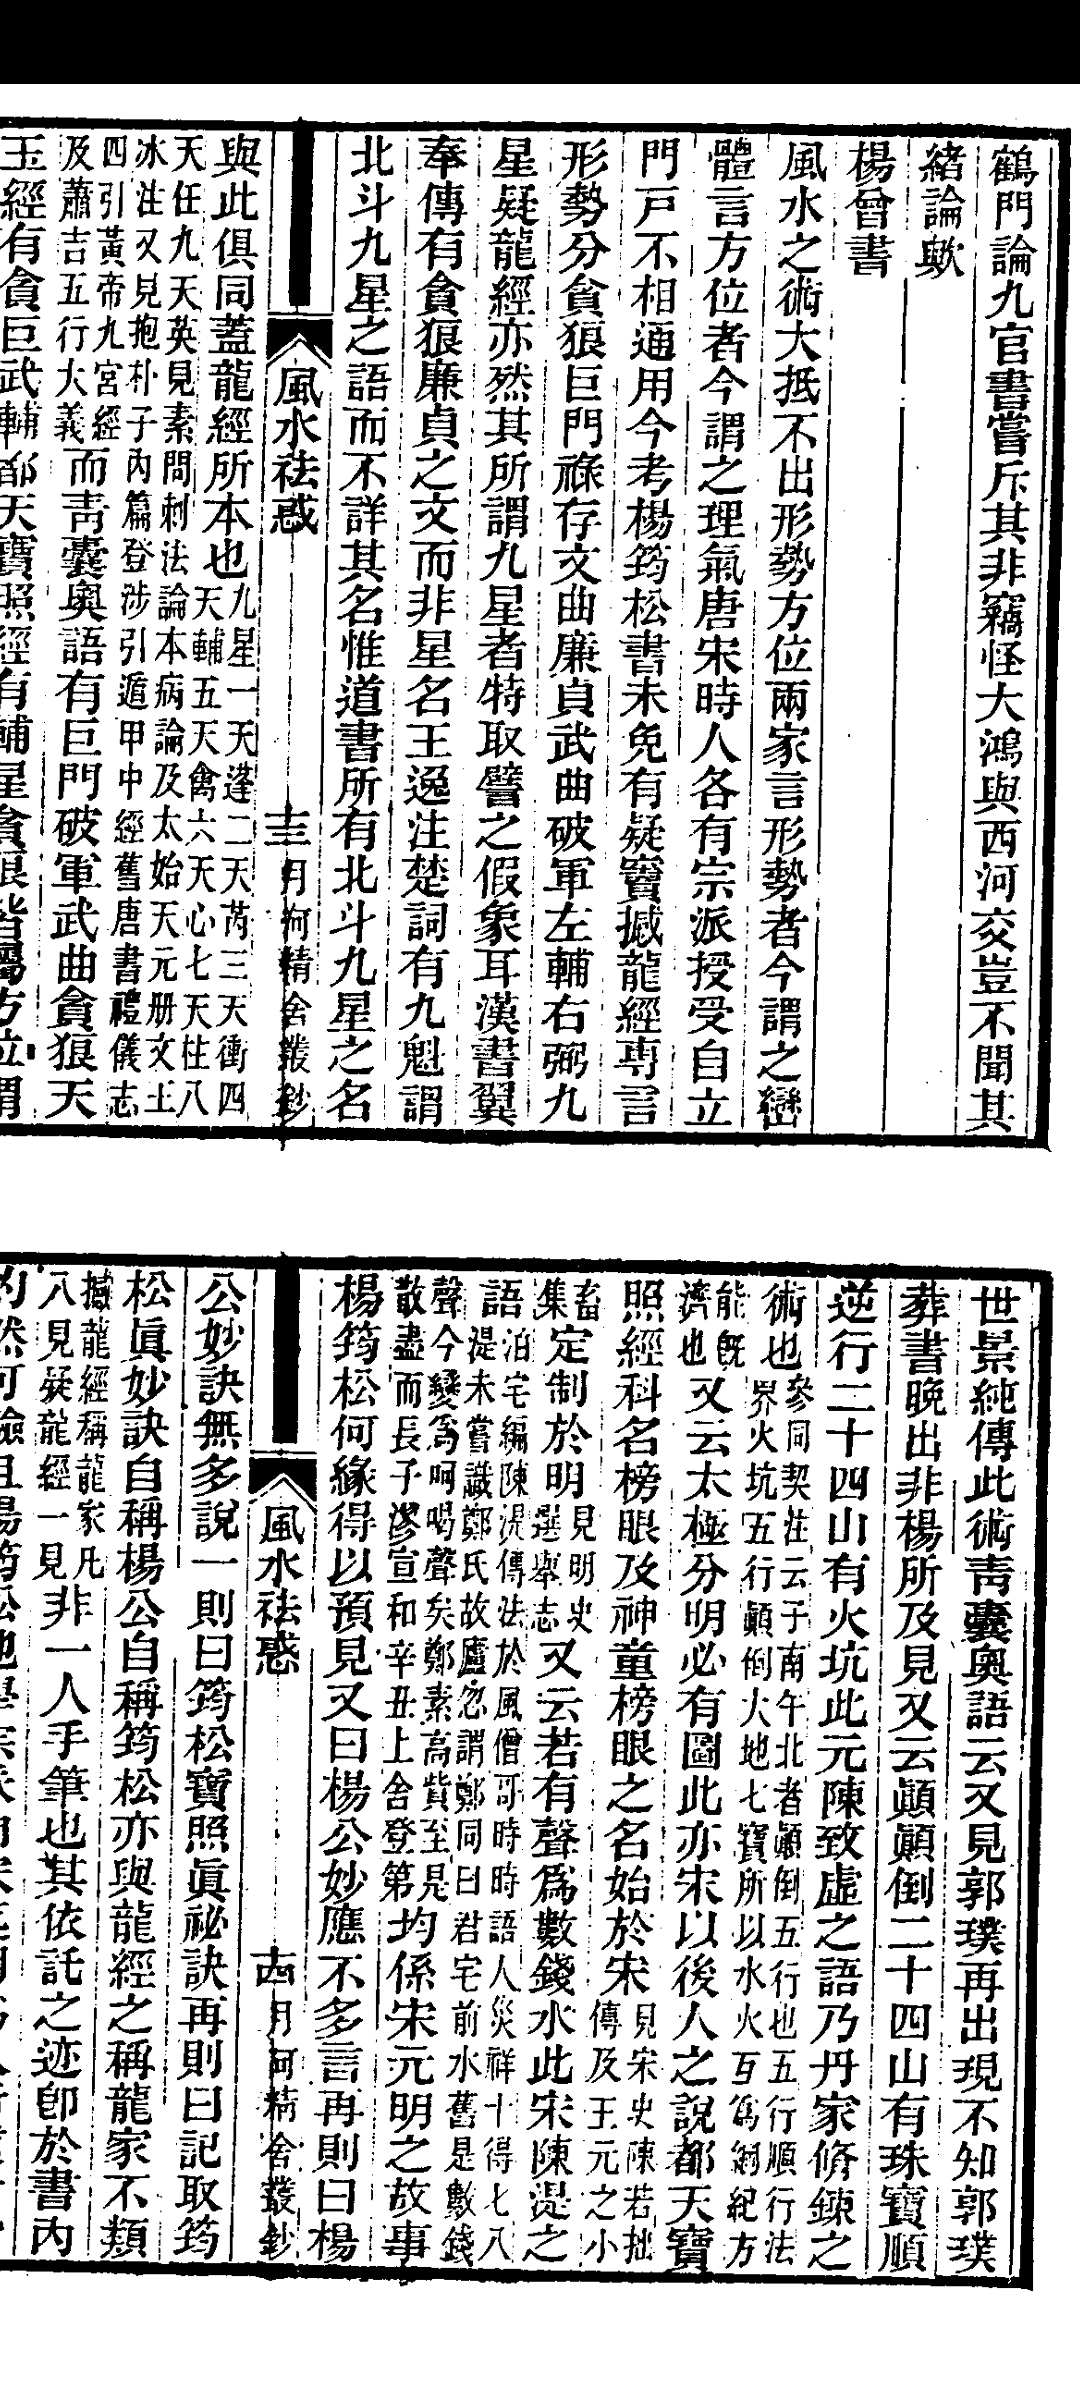 鶴門論九宫書嘗斥其非竊怪大鴻與西河交豈不聞其
緒論歟
楊曾書
風水之術大抵不出形勢方位兩家言形勢者今謂之巒
體言方位者今謂之理氣唐宋時人各有宗派授受自立
門戸不相通用今考楊筠松書未免有疑竇撼龍經専言
形勢分貪狼巨門祿存文曲廉貞武曲破軍左輔右弼九
星疑龍經亦然其所謂九星者特取譬之假象耳漢書翼
奉傳有貪狼廉貞之文而非星名王逸注楚詞有九魁謂
北斗九星之語而不詳其名惟道書所有北斗九星之名
風水祛惑
十三
月河精舍叢鈔
與此俱同蓋龍經所本也九星一天蓬二天芮三天衝四
天輔五天禽六天心七天柱八
天任九天英見素問刺法論本病論及太始天元册文王
冰注又見抱朴子內篇登涉引遁甲中經舊唐書禮儀志
四引黃帝九宮經
及蕭吉五行大義而靑囊奥語有巨門破軍武曲貪狼天
玉經有貪巨武輔都天寶照經有輔星貪狼皆屬方位謂
世景純傳此術靑囊奥語云又見郭璞再出現不知郭璞
葬書晚出非楊所及見又云顚顚倒二十四山有珠寶順
逆行二十四山有火坑此元陳致虛之語乃丹家修鍊之
術也參同契注云子南午北者顚倒五行也五行順行法
界火坑五行顚倒大地七寶所以水火互爲綱紀方
能旣
濟也又云太極分明必有圖此亦宋以後人之說都天寶
照經科名榜眼及神童榜眼之名始於宋見宋史陳若拙
傳及王元之小
畜
集定制於明見明史
選舉志又云若有聲爲數錢水此宋陳浞之
語泊宅編陳浞傳法於風僧哥時時語人災祥十得七八
浞未嘗識鄭氏故廬忽謂鄭同曰君宅前水舊是數錢
聲今變爲呵喝聲矣鄭素高貲至是
散盡而長子滲宣和辛丑上舍登第均係宋元明之故事
楊筠松何緣得以預見又曰楊公妙應不多言再則曰楊
風水祛惑
十四
月河精舍叢鈔
公妙訣無多說一則曰筠松寶照眞祕訣再則曰記取筠
松眞妙訣自稱楊公自稱筠松亦與龍經之稱龍家不類
撼龍經稱龍家凡
八見疑龍經一見非一人手筆也其依託之迹卽於書內